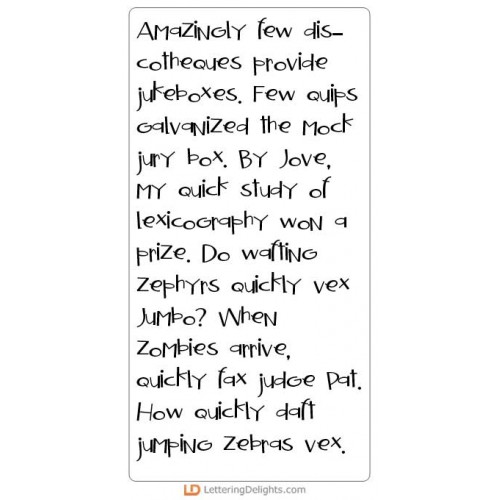 Amazingly few dis-
cotheques provide
jukeboxes. Few quips
galvanized the mock
jury box. By Jove,
my quick study of
lexicography won a
prize. Do wafting
zephyrs quickly vex
Jumbo? When
zombies arrive,
quickly fax judge Pat.
How quickly daft
jumping zebras vex.
LD LetteringDelights.com